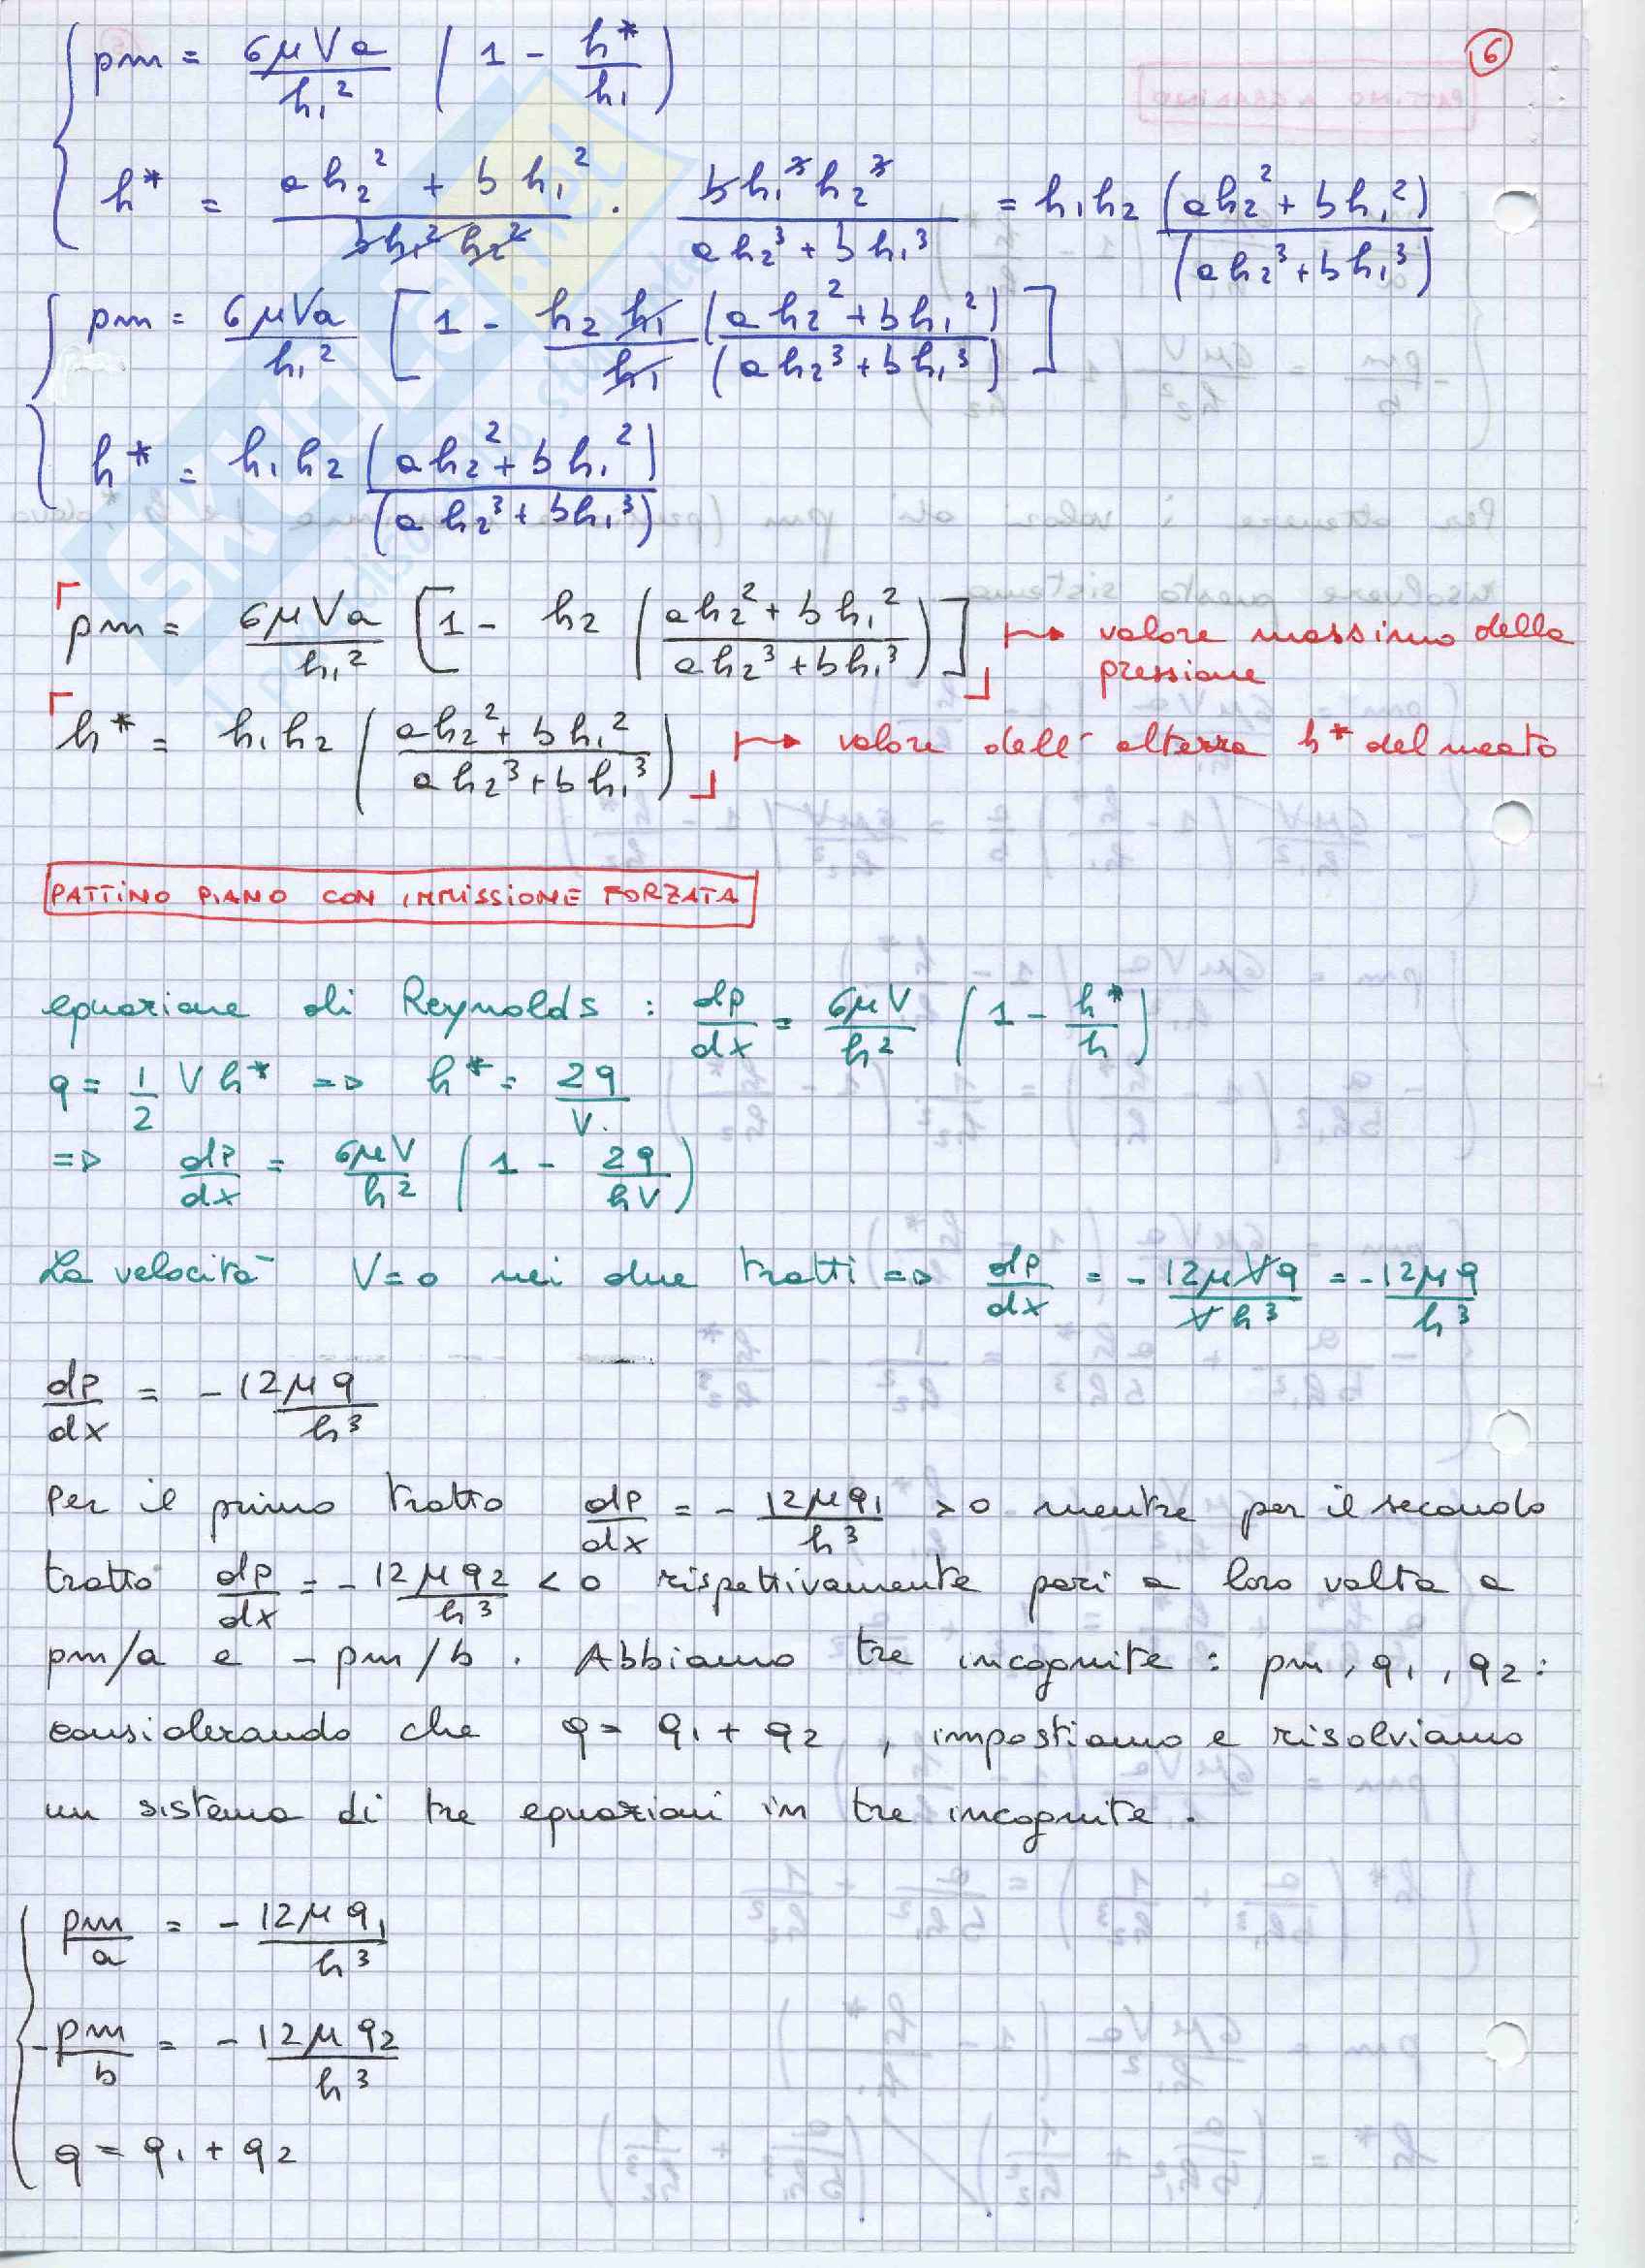 6
pm = 6μVa/h₁² (1 - h*/h₁)
h* = (ah₂² + bh₁²)/(bh₁²h₂²) · (bh₁³h₂³)/(ah₂³ + bh₁³) = h₁h₂ (ah₂² + bh₁²)/(ah₂³ + bh₁³)
pm = 6μVa/h₁² [1 - (h₂h₁)/h₁ (ah₂² + bh₁²)/(ah₂³ + bh₁³)]
h* = h₁h₂ (ah₂² + bh₁²)/(ah₂³ + bh₁³)
pm = 6μVa/h₁² [1 - h₂ ((ah₂² + bh₁²)/(ah₂³ + bh₁³))] ↦ valore massimo della
pressione
h* = h₁h₂ ((ah₂² + bh₁²)/(ah₂³ + bh₁³)) ↦ valore dell' altezza h* del meato
PATTINO PIANO CON IMMISSIONE FORZATA
equazione di Reynolds : dp/dx = 6μV/h² (1 - h*/h)
q = 1/2 V h* => h* = 2q/V.
=> dp/dx = 6μV/h² (1 - 2q/hV)
La velocità V=0 nei due tratti => dp/dx = - 12μVq/Vh³ = - 12μq/h³
dp/dx = - 12μq/h³
Per il primo tratto dp/dx = - 12μq₁/h³ > 0 mentre per il secondo
tratto dp/dx = - 12μq₂/h³ < 0 rispettivamente pari a loro volta a
pm/a e - pm/b . Abbiamo tre incognite : pm, q₁, q₂ :
considerando che q = q₁ + q₂ , impostiamo e risolviamo
un sistema di tre equazioni in tre incognite .
pm/a = - 12μq₁/h³
- pm/b = - 12μq₂/h³
q = q₁ + q₂